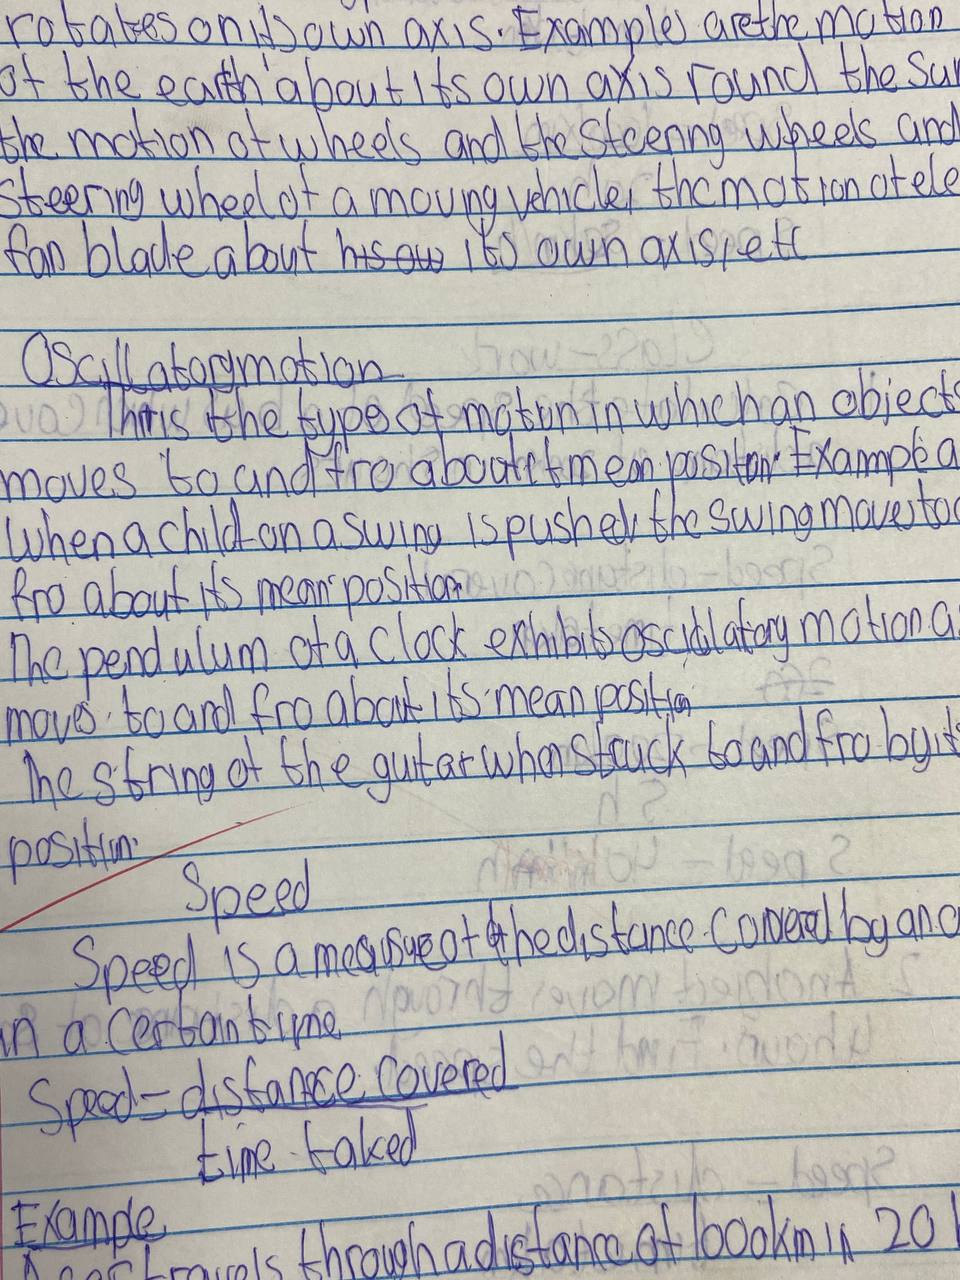 rotates on its own axis. Examples are the motion
of the earth about its own axis round the sun
the motion of wheels and the steering wheels and
steering wheel of a moving vehicle, the motion of ele
fan blade about his ow its own axis, etc
Oscillatory motion
This is the type of motion in which an objects
moves to and fro about it mean position. Example a
When a child on a swing is pushed, the swing move to a
fro about its mean position
The pendulum of a clock exhibits oscillatory motion as
move to and fro about its mean position
The string of the guitar when struck to and fro by its
position.
Speed
Speed is a measure of the distance covered by an o
in a certain time
Speed = distance covered
time taked
Example
A car travels through a distance of 1000km in 20 h